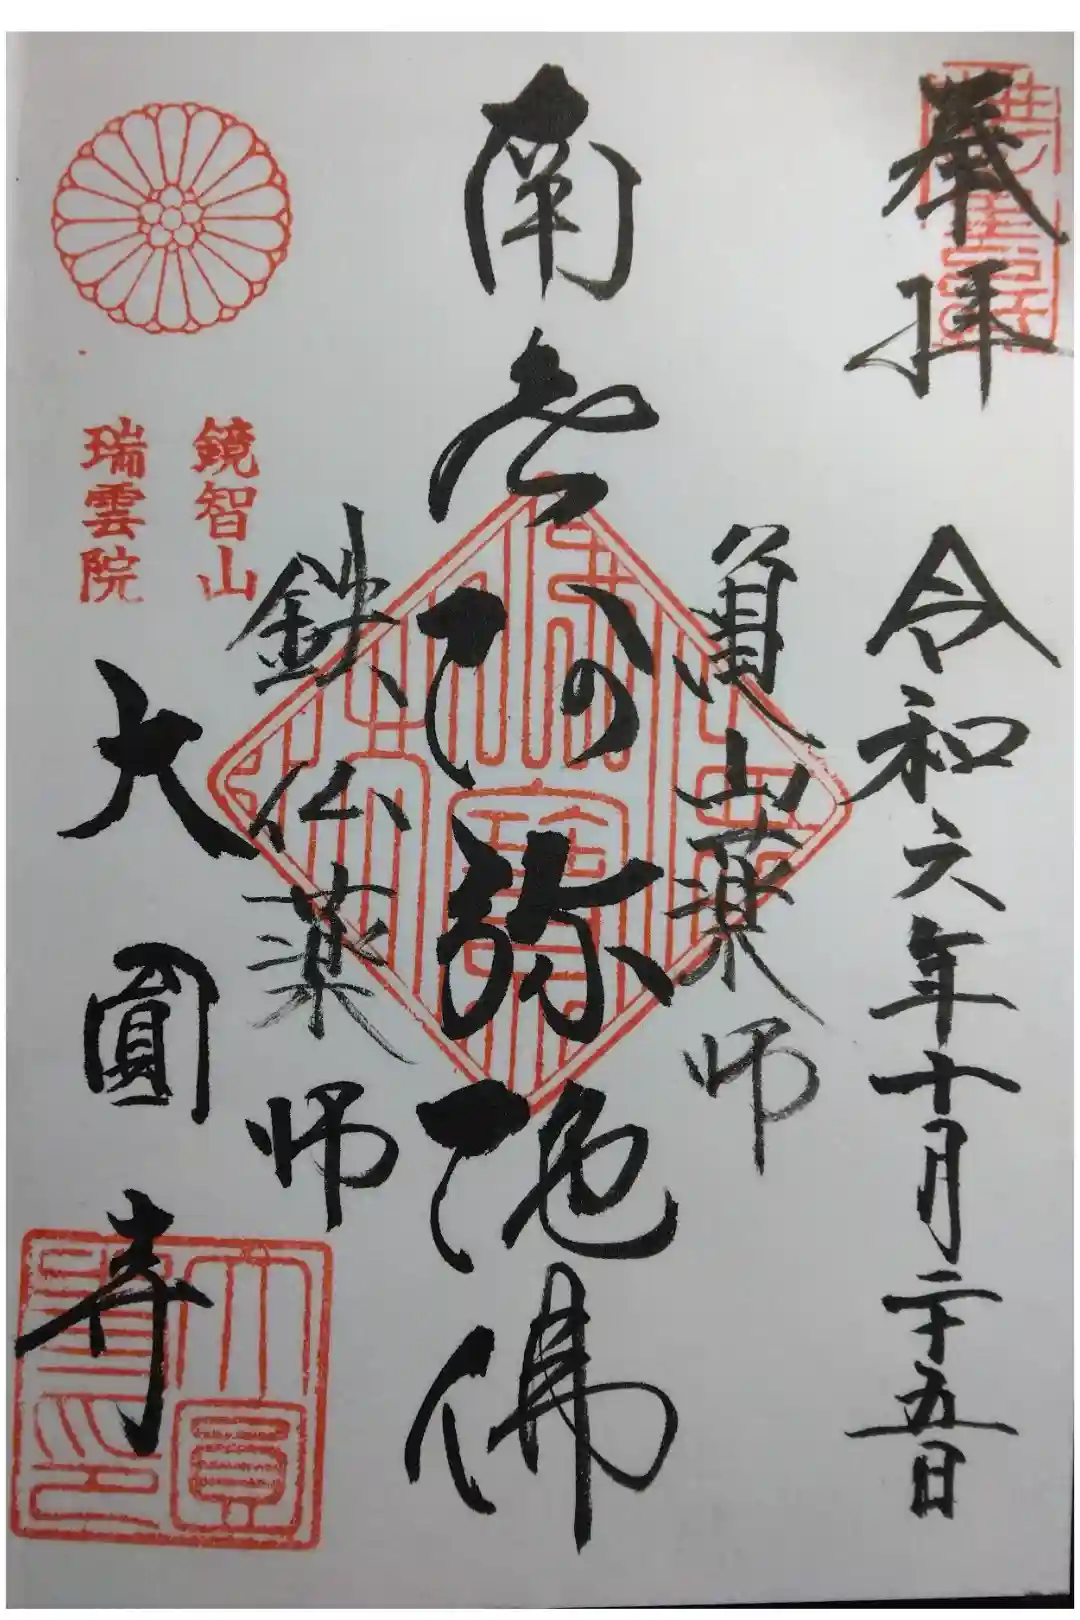 奉拝
令和六年十月二十五日
山薬師
南無阿弥陀佛
鉄仏薬師
鏡智山
瑞雲院
大圓寺